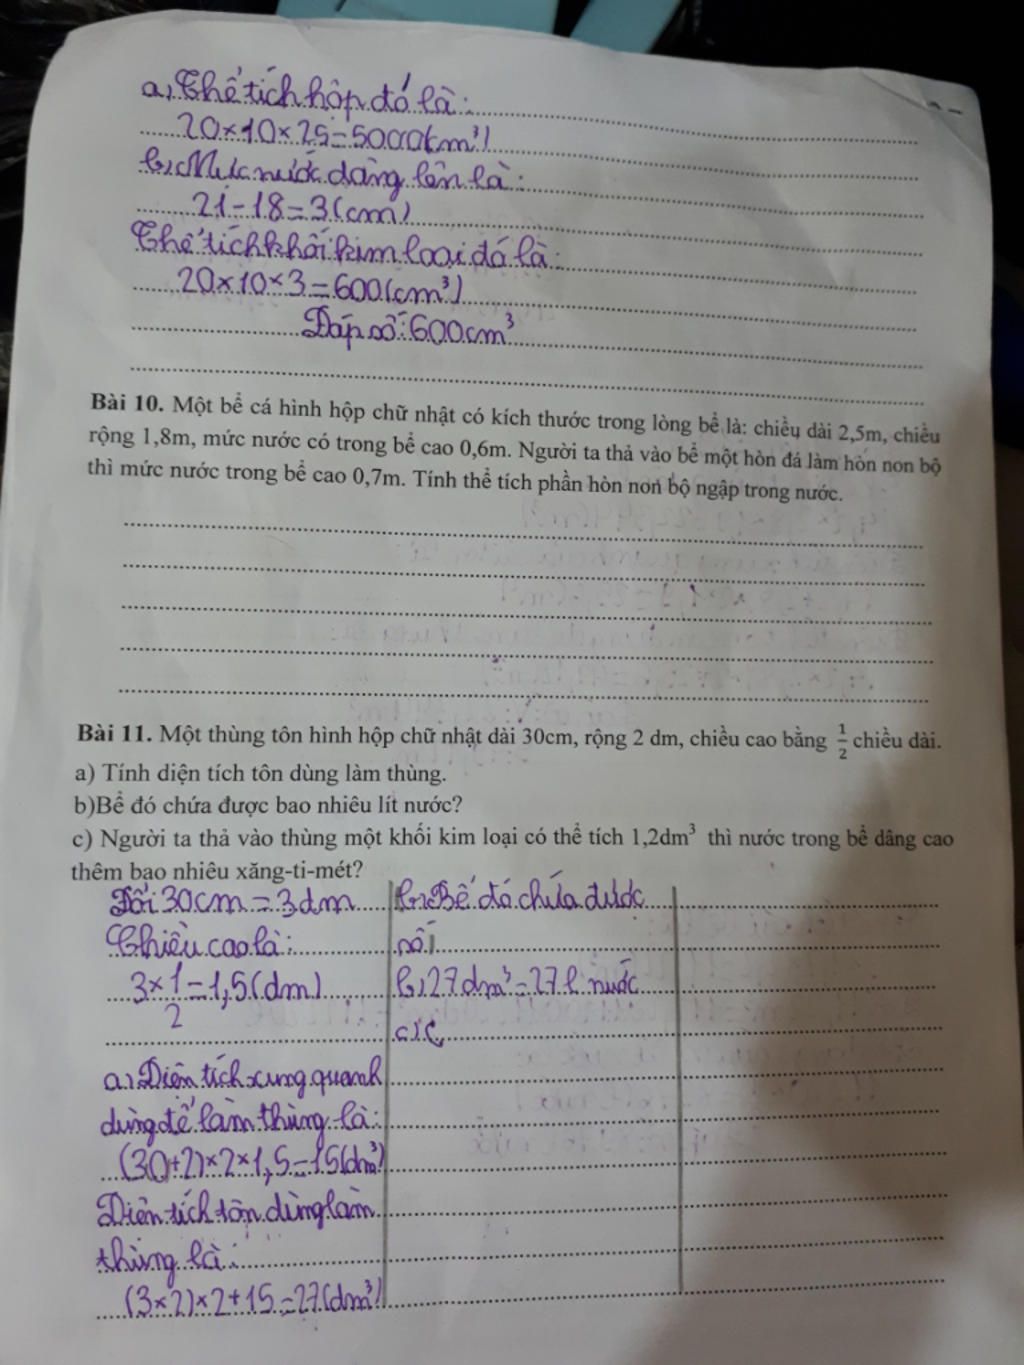 a, Thể tích hộp đó là:
20×10×25=5000(cm³)
b, Mực nước dâng lên là:
21-18=3(cm)
Thể tích khối kim loại đó là:
20×10×3=600(cm³)
Đáp số: 600cm³
Bài 10. Một bể cá hình hộp chữ nhật có kích thước trong lòng bể là: chiều dài 2,5m, chiều
rộng 1,8m, mức nước có trong bể cao 0,6m. Người ta thả vào bể một hòn đá làm hòn non bộ
thì mức nước trong bể cao 0,7m. Tính thể tích phần hòn non bộ ngập trong nước.
Bài 11. Một thùng tôn hình hộp chữ nhật dài 30cm, rộng 2 dm, chiều cao bằng 1/2 chiều dài.
a) Tính diện tích tôn dùng làm thùng.
b)Bể đó chứa được bao nhiêu lít nước?
c) Người ta thả vào thùng một khối kim loại có thể tích 1,2dm³ thì nước trong bể dâng cao
thêm bao nhiêu xăng-ti-mét?
Đổi 30cm = 3dm
Chiều cao là:
3×1/2=1,5(dm)
a, Diện tích xung quanh
dùng để làm thùng là:
(30+2)×2×1,5=15(dm³)
Diện tích tôn dùng làm
thùng là:
(3×2)×2+15=27(dm³)
b, Bể đó chứa được
số l
b, 27dm³=27l nước
c, C